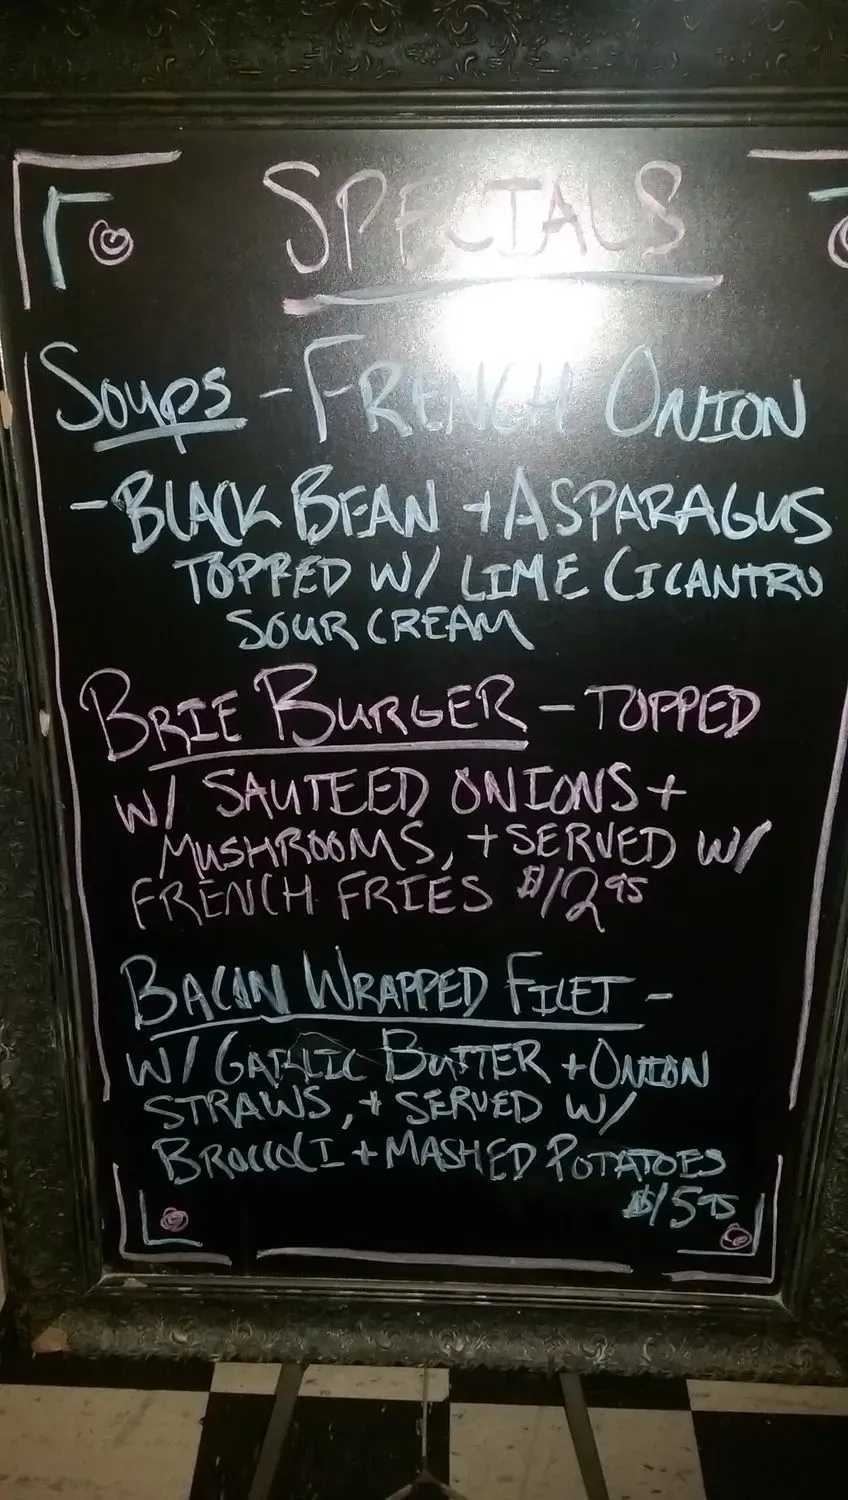 SPECIALS
SOUPS - FRENCH ONION
- BLACK BEAN + ASPARAGUS
TOPPED W/ LIME CILANTRO
SOUR CREAM
BRIE BURGER - TOPPED
W/ SAUTEED ONIONS +
MUSHROOMS, + SERVED W/
FRENCH FRIES $12.95
BACON WRAPPED FILET -
W/ GARLIC BUTTER + ONION
STRAWS, + SERVED W/
BROCCOLI + MASHED POTATOES
$15.95